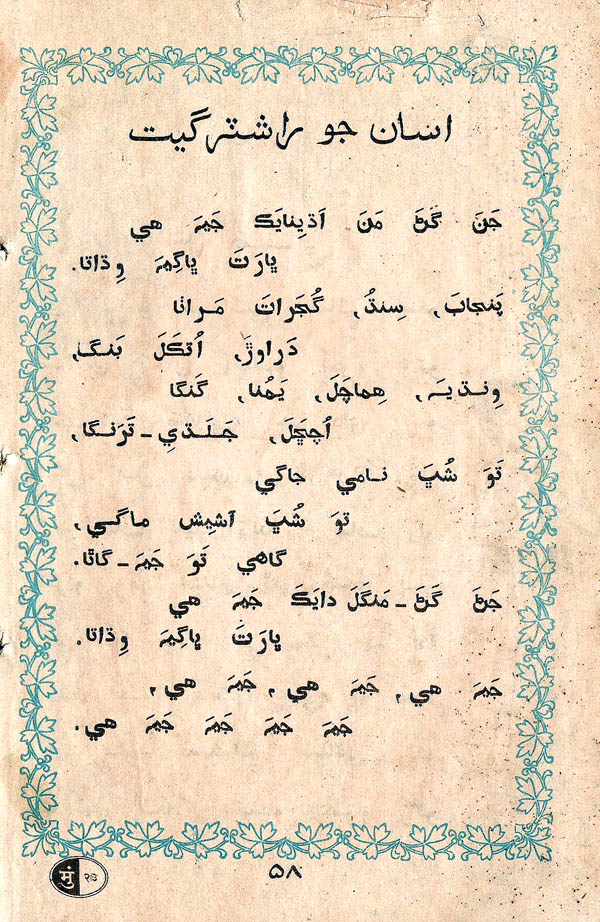 اسان جو راشٽر گيت
جَنَ گَڻَ مَنَ اَڌِينايَڪَ جَيہَ هي
ڀارَتَ ڀاگِيہَ وِڌاتا.
پَنجابَ، سِنڌُ، گُجَراتَ مَراٺا
دَراوِڙَ، اُتڪَلَ بَنگَ،
وِنڌيہ، هِماچَلَ، يَمُنا، گَنگا
اُڇَڇَلَ، جَلَڌي-تَرَنگا،
تَوَ شُڀَ نامي جاگي
تَوَ شُڀَ آشِيش ماگي،
گاهي تَوَ جَيہَ-گاٿا.
جَنَ گَڻَ-مَنگَلَ دايَڪَ جَيہَ هي
ڀارَتَ ڀاگِيہَ وِڌاتا.
جَيہَ هي، جَيہَ هي، جَيہَ هي،
جَيہَ جَيہَ جَيہَ جَيہَ هي.
मुं २७
۵۸